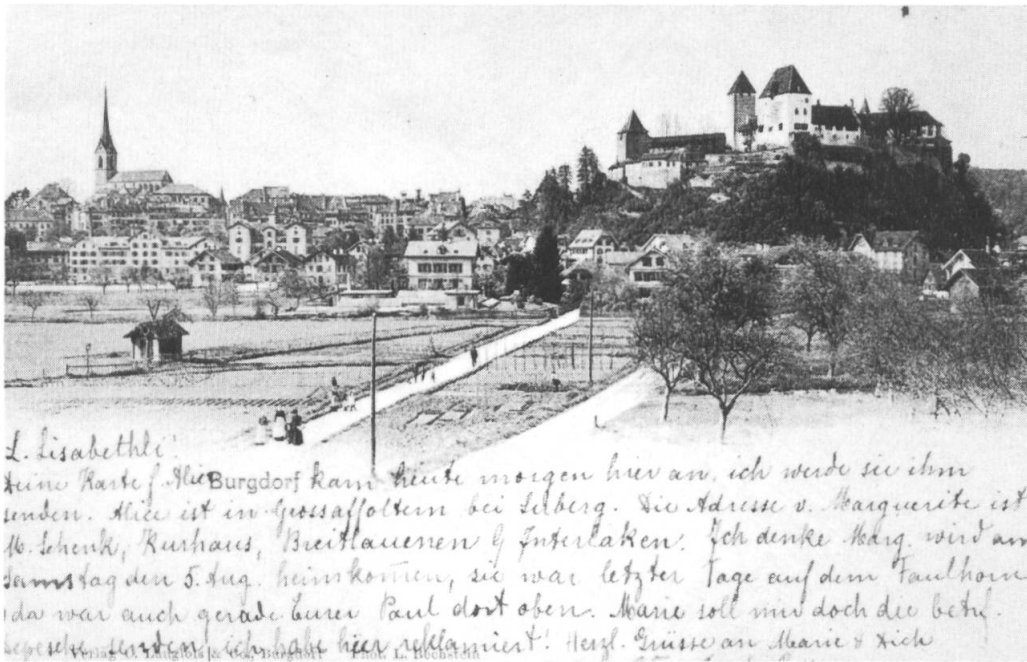 L. Lisabethli!
Deine Karte f. Alice Burgdorf kam heute morgen hier an, ich werde sie ihm
senden. Alice ist in Grossaffoltern bei Suberg. Die Adresse v. Marguerite ist
M. Schenk, Kurhaus, Breitlauenen b/ Interlaken. Ich denke Marg. wird am
Samstag den 5. Aug. heimkommen, sie war letzter Tage auf dem Faulhorn
da war auch gerade Eurer Paul dort oben. Marie soll mir doch die betrf.
Depesche senden, ich habe hier reklamiert! Herzl. Grüsse an Marie & Dich
Verlag C. Langlois & Co., Burgdorf Phot. L. Bechstein